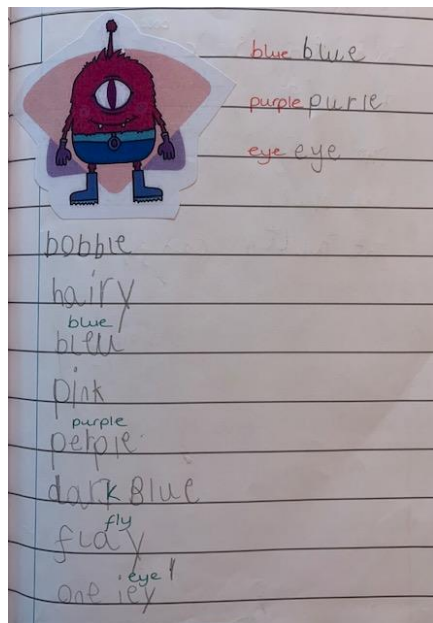 blue blue
purple purle
eye eye
bobble
hairy
blue
bleu
pink
purple
perple
dark Blue
fly
flay
eye
one iey